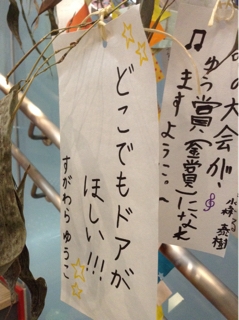 どこでもドアが
ほしい!!!
すがわら ゆうこ
の大会が、
ゆう賞(金賞)になれ
ますように。〜